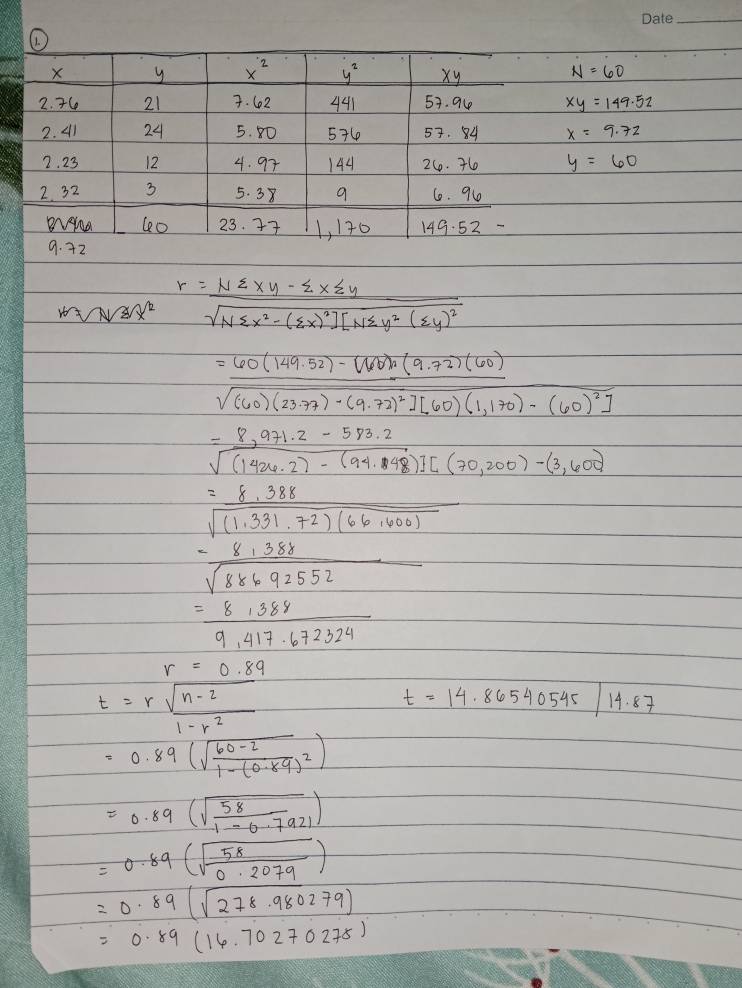 Date
1.
x y x² y² xy N = 60
2.76 21 7.62 441 57.96 xy = 149.52
2.41 24 5.80 576 57.84 x = 9.72
2.23 12 4.97 144 26.76 y = 60
2.32 3 5.38 9 6.96
60 23.77 1,170 149.52 -
9.72
r = NΣxy - ΣxΣy
√NΣx² - (Σx)²][NΣy² (Σy)²
= 60(149.52) - (9.72)(60)
√(60)(23.77) - (9.72)²][60)(1,170) - (60)²]
= 8,971.2 - 583.2
√(1426.2) - (94.48)][(70,200) - (3,600)
= 8,388
√(1,331.72)(66,600)
= 8,388
√88692552
= 8,388
9,417.672324
r = 0.89
t = r √n-2 t = 14.86540545 | 14.87
1-r²
= 0.89 (√60-2
1-(0.89)²)
= 0.89 (√58
1-0.7921)
= 0.89 (√58
0.2079)
= 0.89 (√278.980279)
= 0.89 (16.70270275)